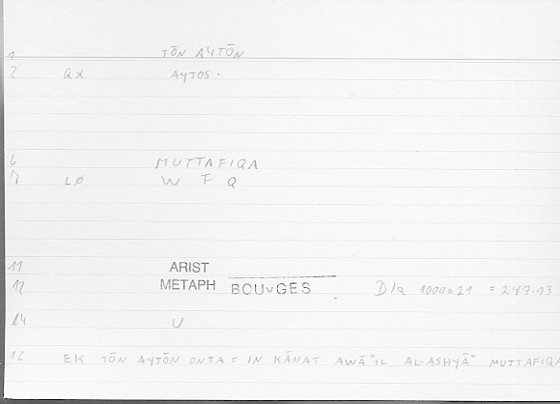 1 TŌN AYTŌN
2 QX AYTOS.
6 MUTTAFIQA
7 LØ W F Q
11 ARIST
12 METAPH BOUYGES D/a 1000a21 = 247.13
14 U
16 EK TŌN AYTŌN ONTA = IN KĀNAT AWĀ"IL AL-ASHYĀ" MUTTAFIQA